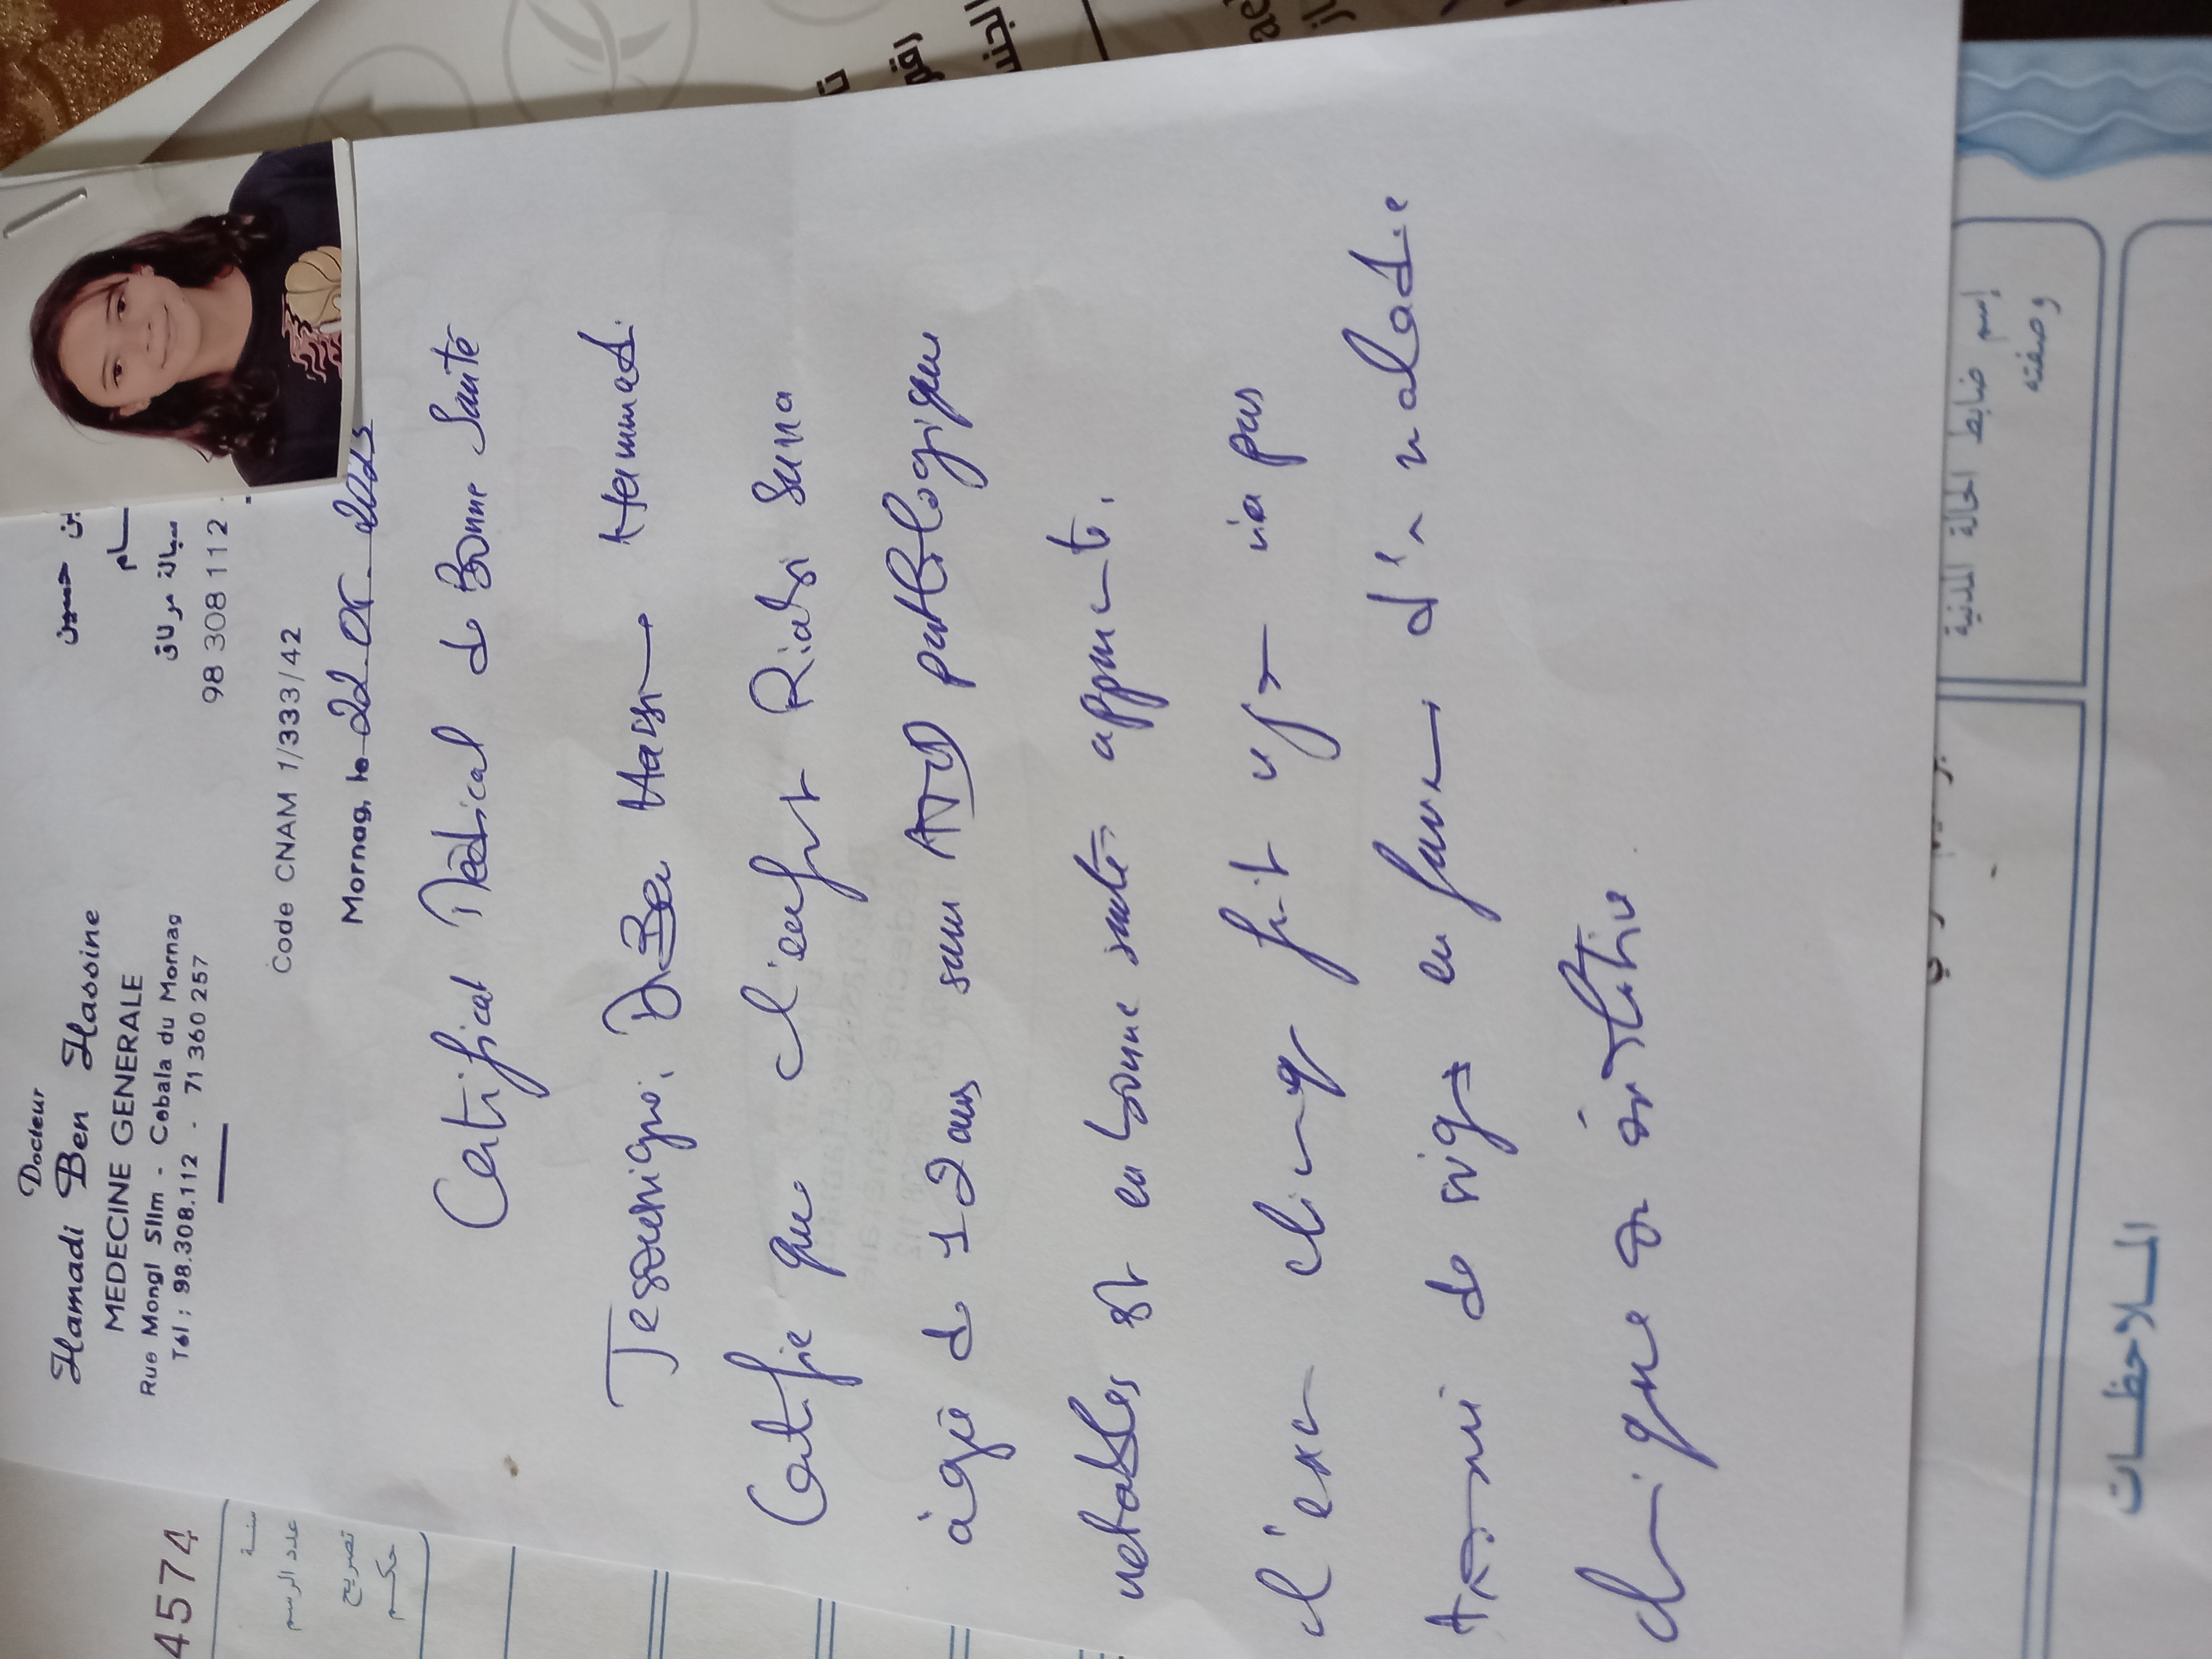 Docteur
Hamadi Ben Hassine
MEDECINE GENERALE
Rue Mongi Slim - Cebala du Mornag
Tél : 98.308.112 - 71 360 257
98 308 112
Code CNAM 1/333/42
Mornag, le 22
Certificat Médical de Bonne Santé
Je soussigné: Dr Ben Hassine Hammadi.
Certifie que l'enfant Riahi
âgée de 12 ans sans ATD pathologique
notables est en bonne santé apparente.
l'examen clinique fait ce jour n'a pas
de signe en faveur d'une maladie
clinique
4574
سنة
عدد الرسم
تصريح
حكم
إسم ضابط الحالة المدنية
وصفته
الملاحظات